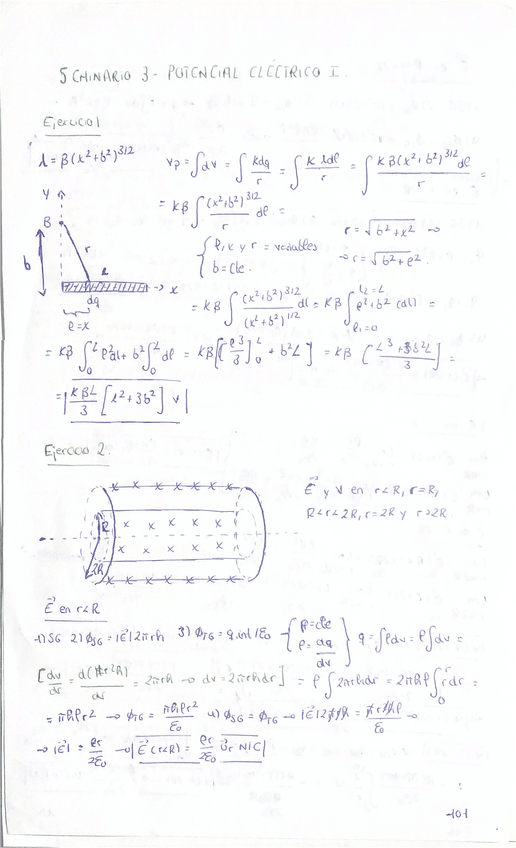 SEMINARIO 3 - POTENCIAL ELÉCTRICO I.
Ejercicio 1
λ = β(x²+b²)^3/2
Vp = ∫dv = ∫ Kdq/r = ∫ K λdl/r = ∫ Kβ(x²+b²)^3/2 dl/r =
= Kβ ∫ (x²+b²)^3/2/r dl =
{ l, x y r = variables
b = cte.
r = √(b²+x²) →
→ r = √(b²+l²).
Y
B
b
r
L
→ X
dq
l=x
= Kβ ∫ (x²+b²)^3/2/(x²+b²)^1/2 dl = Kβ ∫ l²+b² (dl) =
l2=L
l1=0
= Kβ ∫₀ᴸ l²dl + b² ∫₀ᴸ dl = Kβ [[l³/3]₀ᴸ + b²L] = Kβ [L³+3b²L/3] =
= |KβL/3 [L²+3b²] V|
Ejercicio 2.
E⃗ y V en r<R, r=R,
R<r<2R, r=2R y r>2R.
R
2R
E⃗ en r<R
1) SG 2) ϕSG = |E⃗|2πrh 3) ϕTG = q int/ε0 { ρ=cte
ρ=dq/dv } q = ∫ρdv = ρ∫dv =
[dv/dr = d(πr²h)/dr = 2πrh → dv = 2πrhdr] = ρ ∫2πrhdr = 2πhρ ∫₀ʳ rdr =
= πhρr² → ϕTG = πhρr²/ε0 4) ϕSG = ϕTG → |E⃗|2πrh = πr²hρ/ε0 →
→ |E⃗| = ρr/2ε0 → |E⃗(r<R) = ρr/2ε0 u⃗r N/C|
-101